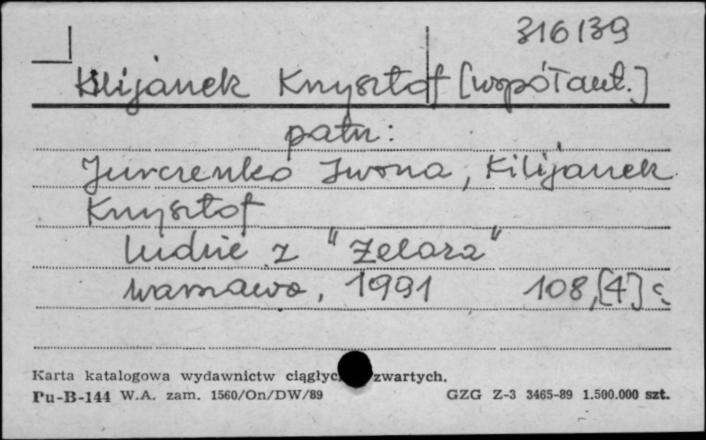 316139
Kilijanek Krzysztof [współaut.]
patrz:
Jurczenko Iwona, Kilijanek
Krzysztof
Ludzie z "Żelaza"
Warszawa, 1991 108,[4] s
Karta katalogowa wydawnictw ciągłyc zwartych.
Pu-B-144 W.A. zam. 1560/On/DW/89 GZG Z-3 3465-89 1.500.000 szt.